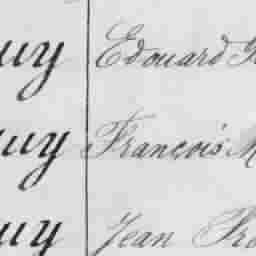 uy Edouard
uy François M
uy Jean